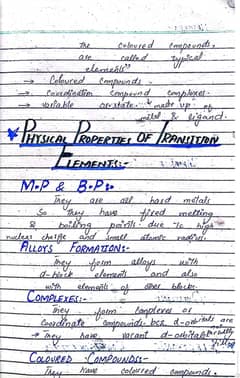 the coloured compounds,
are called typical
elements"
→ Coloured compounds.
→ Coordination compound complexes.
→ variable ox-state. made up of
metal & ligand.
PHYSICAL PROPERTIES OF TRANSITION
ELEMENTS:-
M.P & B.P:-
They are all hard metals
So they have fixed melting
& boiling points due to high
nuclear charge and small atomic radius.
ALLOYS FORMATIONS:-
They form alloys with
d-block elements and also
with elements of other blocks.
COMPLEXES:-
They form complexes or
Coordinate compounds bcz d-orbitals are
→ They have vacant d-orbitals partially
filled
COLOURED COMPOUNDS:-
They have coloured compounds.